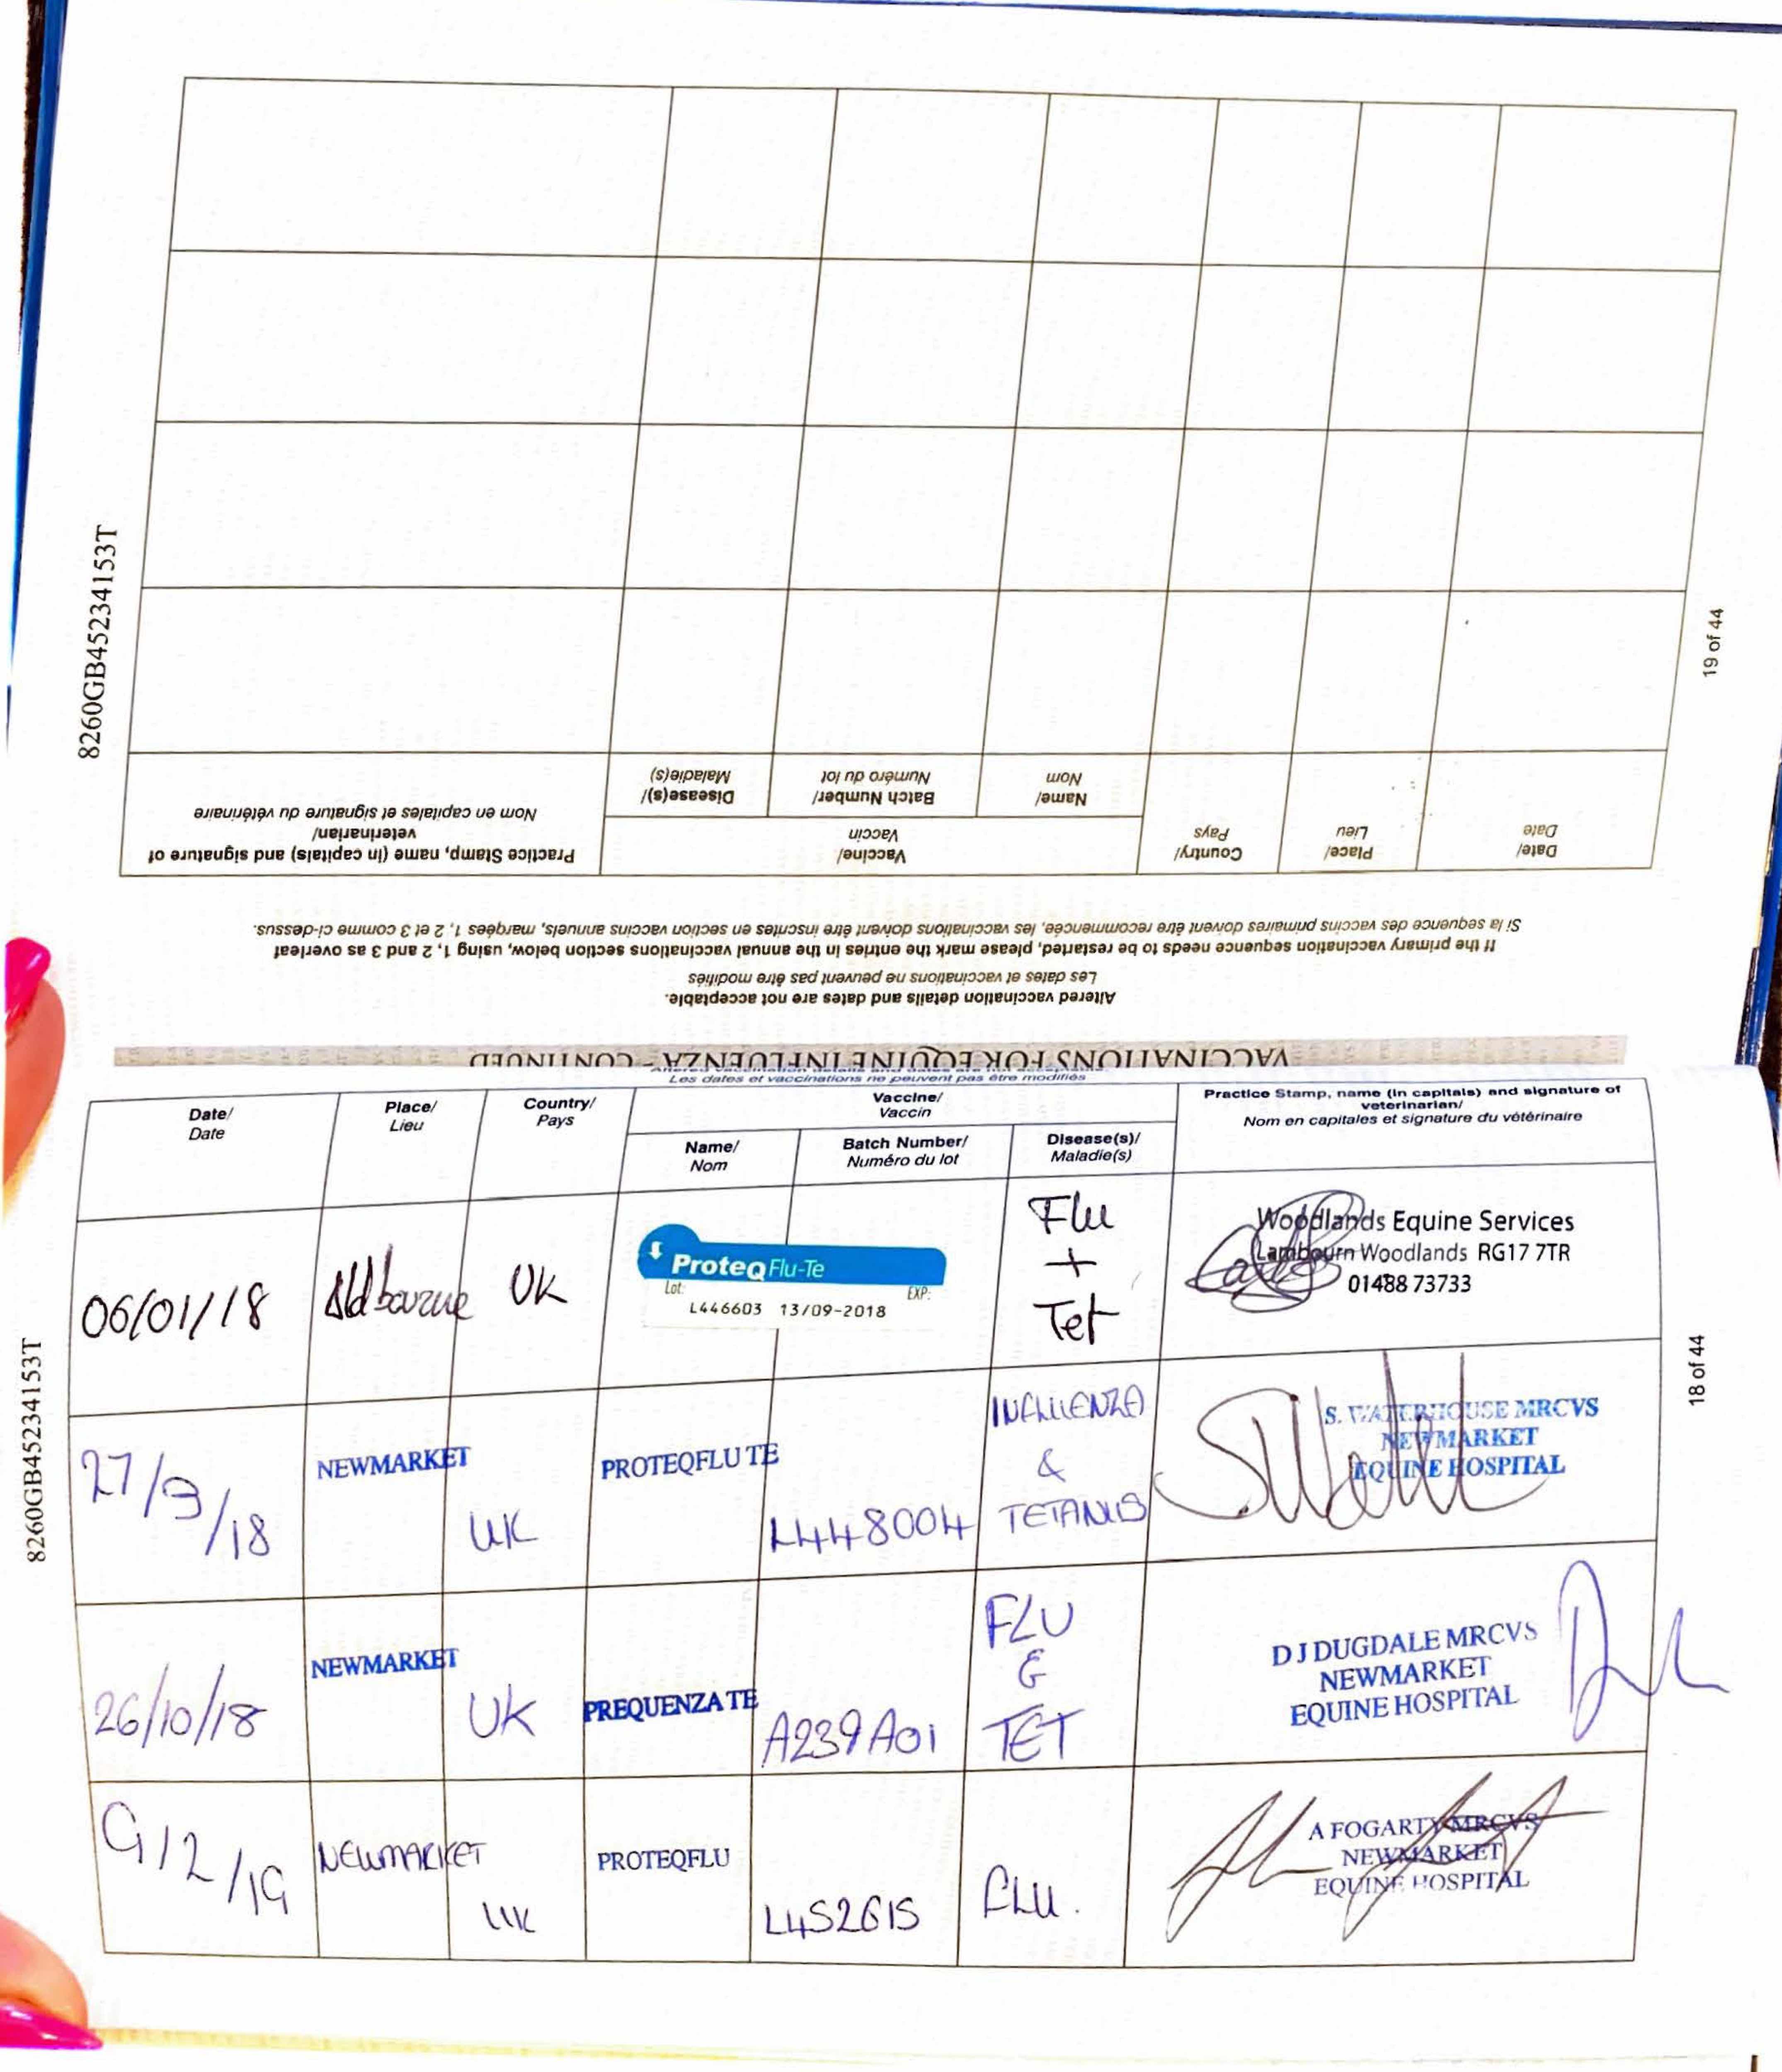 8260GB45234153T
19 of 44
VACCINATIONS FOR EQUINE INFLUENZA - CONTINUED
Altered vaccination details and dates are not acceptable.
Les dates et vaccinations ne peuvent pas être modifiés
If the primary vaccination sequence needs to be restarted, please mark the entries in the annual vaccinations section below, using 1, 2 and 3 as overleaf
Si la sequence des vaccins primaires doivent être recommencée, les vaccinations doivent être inscrites en section vaccins annuels, margées 1, 2 et 3 comme ci-dessus.
Date/
Date
Place/
Lieu
Country/
Pays
Vaccine/
Vaccin
Name/
Nom
Batch Number/
Numéro du lot
Disease(s)/
Maladie(s)
Practice Stamp, name (in capitals) and signature of
veterinarian/
Nom en capitales et signature du vétérinaire
Les dates et vaccinations ne peuvent pas être modifiés
Date/
Date
Place/
Lieu
Country/
Pays
Vaccine/
Vaccin
Name/
Nom
Batch Number/
Numéro du lot
Disease(s)/
Maladie(s)
Practice Stamp, name (in capitals) and signature of
veterinarian/
Nom en capitales et signature du vétérinaire
06/01/18
Aldbourne
UK
ProteqFlu-Te
Lot:
EXP:
L446603 13/09-2018
Flu
+
Tet
Woodlands Equine Services
Lambourn Woodlands RG17 7TR
01488 73733
27/3/18
NEWMARKET
UK
PROTEQFLU TE
L448004
INFLUENZA
&
TETANUS
S. WATERHOUSE MRCVS
NEWMARKET
EQUINE HOSPITAL
26/10/18
NEWMARKET
UK
PREQUENZA TE
A239A01
FLU
&
TET
D J DUGDALE MRCVS
NEWMARKET
EQUINE HOSPITAL
9/2/19
NEWMARKET
UK
PROTEQFLU
L452615
FLU.
A FOGARTY MRCVS
NEWMARKET
EQUINE HOSPITAL
8260GB45234153T
18 of 44